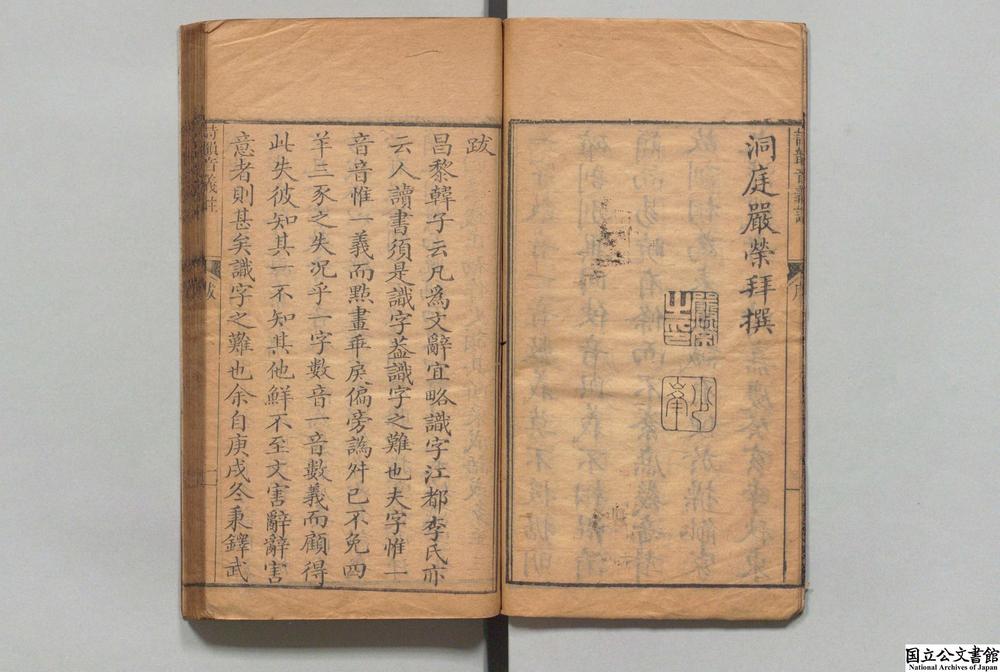 洞庭嚴榮拜撰
跋
昌黎韓子云凡爲文辭宜略識字江都李氏亦
云人讀書須是識字葢識字之難也夫字惟一
音音惟一義而點畫乖戾偏旁譌舛已不免四
羊三豕之失况乎一字數音一音數義而顧得
此失彼知其一不知其他鮮不至文害辭辭害
意者則甚矣識字之難也余自庚戌冬秉鐸武
詩韻音義註
跋
国立公文書館
National Archives of Japan